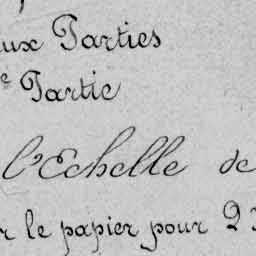 ux Parties
e Partie
l'Echelle de
r le papier pour 2